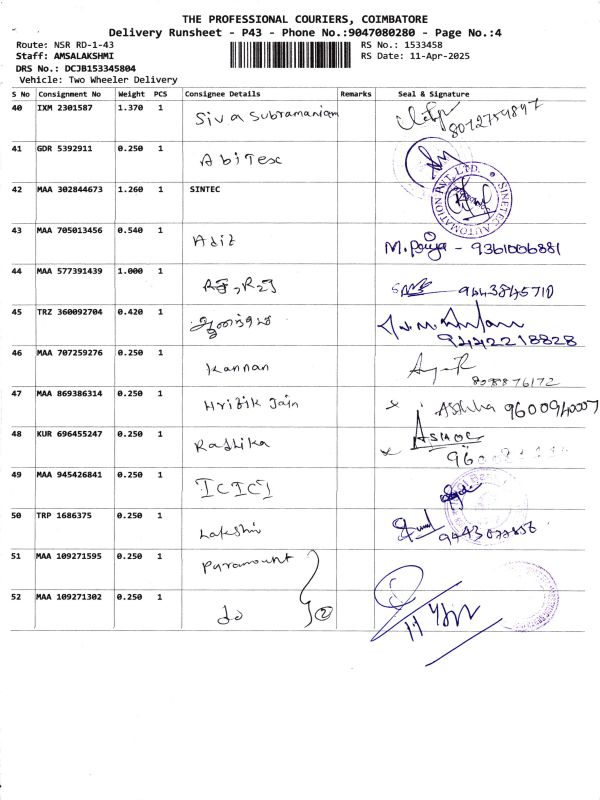 THE PROFESSIONAL COURIERS, COIMBATORE
Delivery Runsheet - P43 - Phone No.:9047080280 - Page No.:4
Route: NSR RD-1-43 RS No.: 1533458
Staff: AMSALAKSHMI RS Date: 11-Apr-2025
DRS No.: DCJB153345804
Vehicle: Two Wheeler Delivery
S No Consignment No Weight PCS Consignee Details Remarks Seal & Signature
40 IXM 2301587 1.370 1 Siva Subramaniam
41 GDR 5392911 0.250 1 AbiTex
42 MAA 302844673 1.260 1 SINTEC SINETEC AUTOMATION PVT. LTD.
43 MAA 705013456 0.540 1 M. Pooja - 9361006881
44 MAA 577391439 1.000 1
45 TRZ 360092704 0.420 1 9442218828
46 MAA 707259276 0.250 1 Kannan
47 MAA 869386314 0.250 1 Hritik Jain 9600940007
48 KUR 696455247 0.250 1 Radhika ASHOK
49 MAA 945426841 0.250 1 ICICI
50 TRP 1686375 0.250 1 Lakshmi
51 MAA 109271595 0.250 1 Paramount
52 MAA 109271302 0.250 1 do 2